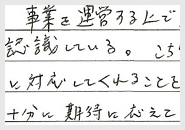 事業を運営する上で
認識している。こち
に対応してくれることを
十分に期待に応えて